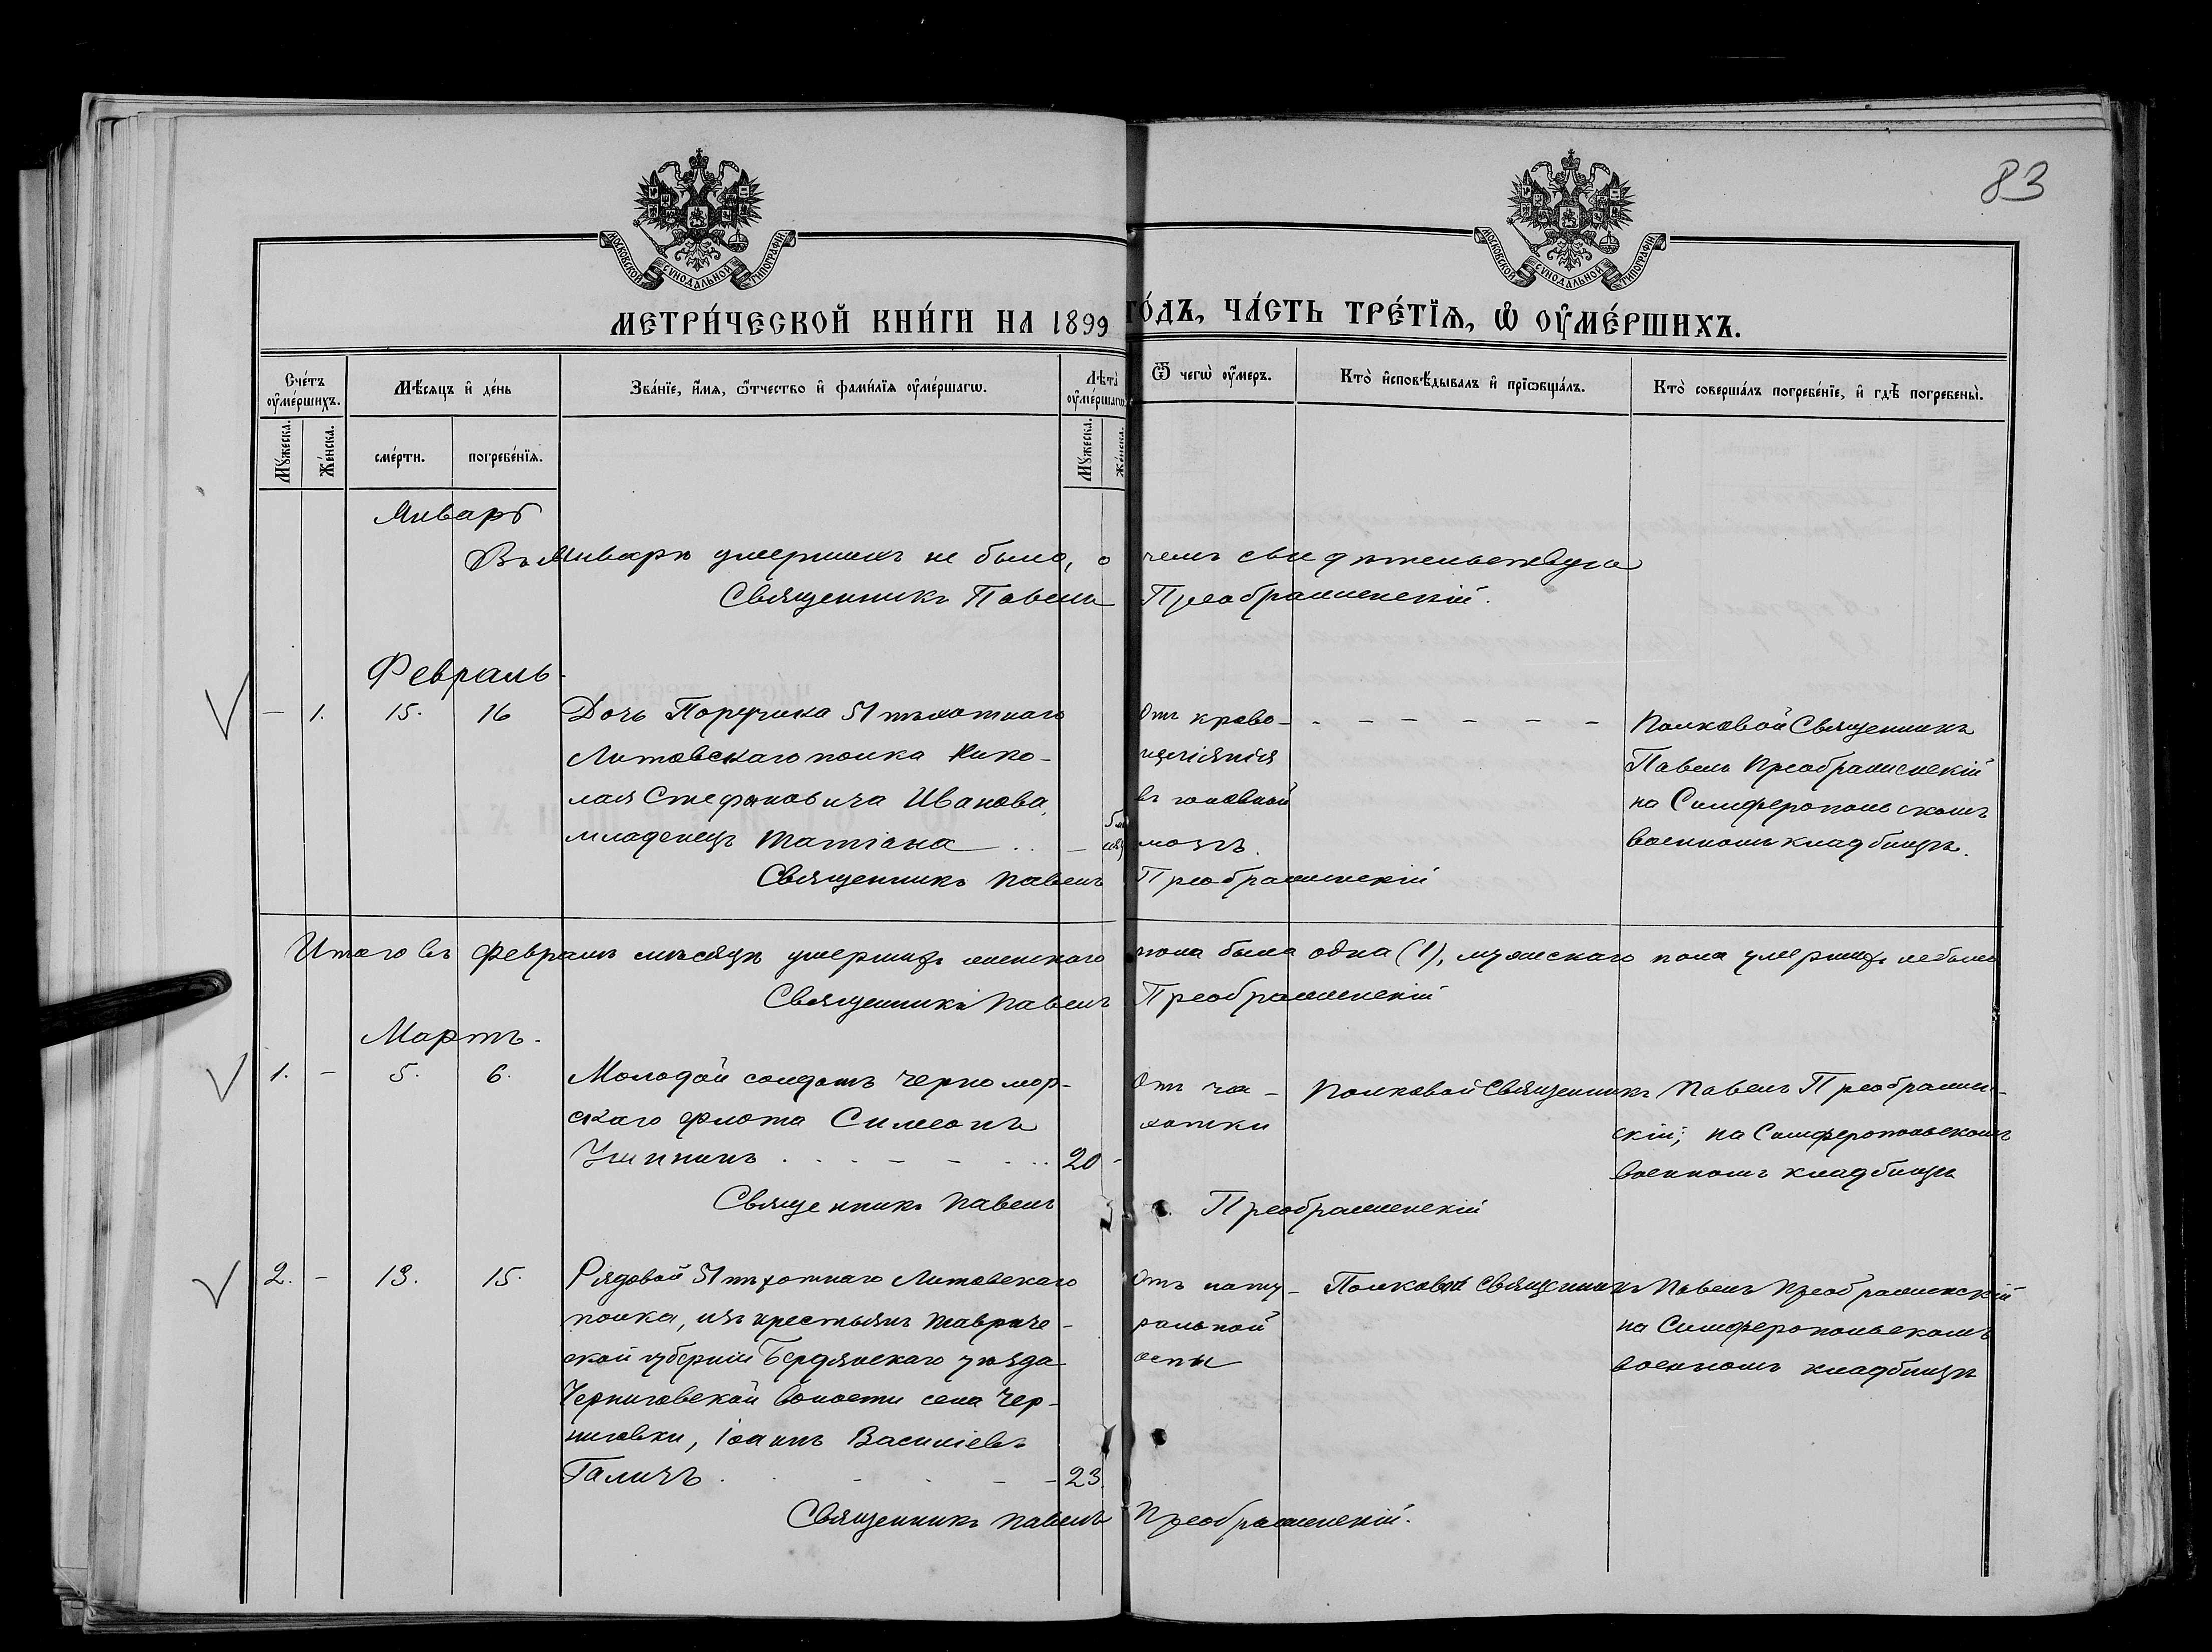 83
МОСКОВСКОЙ СѴНОДАЛЬНОЙ ТИПОГРАФІИ.
МОСКОВСКОЙ СѴНОДАЛЬНОЙ ТИПОГРАФІИ.
МЕТРИ́ЧЕСКОЙ КНИ́ГИ НА 1899 ГО́ДЪ, ЧА́СТЬ ТРЕ́ТЇѦ, Ѡ҆ ОУ҆МЕ́РШИХЪ.
Сче́тъ оу҆ме́ршихъ.
Мѣ́сѧцъ и҆ де́нь
Зва́нїе, и҆́мѧ, ѻ҆́тчество и҆ фами́лїѧ оу҆ме́ршагѡ.
Лѣта̀ оу҆ме́ршагѡ.
Ѿ чегѡ̀ оу҆́меръ.
Кто̀ и҆сповѣ́дывалъ и҆ прїѡбща́лъ.
Кто̀ соверша́лъ погребе́нїе, и҆ гдѣ̀ погребены̀.
Мꙋ́жеска.
Же́нска.
сме́рти.
погребе́нїѧ.
Мꙋ́жеска.
Же́нска.
Январь
Въ Январѣ умершихъ не было, о чемъ свидѣтельствую
Священникъ Павелъ Преображенскій.
Февраль.
— 1. 15. 16 Дочь Поручика 51 пѣхотнаго
Литовскаго полка Нико-
лая Стефановича Иванова,
младенецъ Татіана
Отъ крово-
изліянія
въ головной
мозгъ.
Полковой Священникъ
Павелъ Преображенскій
на Симферопольскомъ
военномъ кладбищѣ.
Священникъ Павелъ Преображенскій
Итого въ Февралѣ мѣсяцѣ умершихъ женскаго пола была одна (1), мужскаго пола умершихъ не было
Священникъ Павелъ Преображенскій
Мартъ.
1. — 5. 6. Молодой солдатъ Черномор-
скаго флота Симеонъ
20
Отъ ча-
хотки
Полковой Священникъ Павелъ Преображен-
скій; на Симферопольскомъ
военномъ кладбищѣ
Священникъ Павелъ Преображенскій
2. — 13. 15. Рядовой 51 пѣхотнаго Литовскаго
полка, изъ крестьянъ Тавриче-
ской губерніи Бердянскаго уѣзда
Черниговской волости села Чер-
ниговки, Іоаннъ Василіевъ
Галичъ 23.
Отъ нату-
ральной
оспы
Полковой Священникъ Павелъ Преображенскій
на Симферопольскомъ
военномъ кладбищѣ
Священникъ Павелъ Преображенскій.